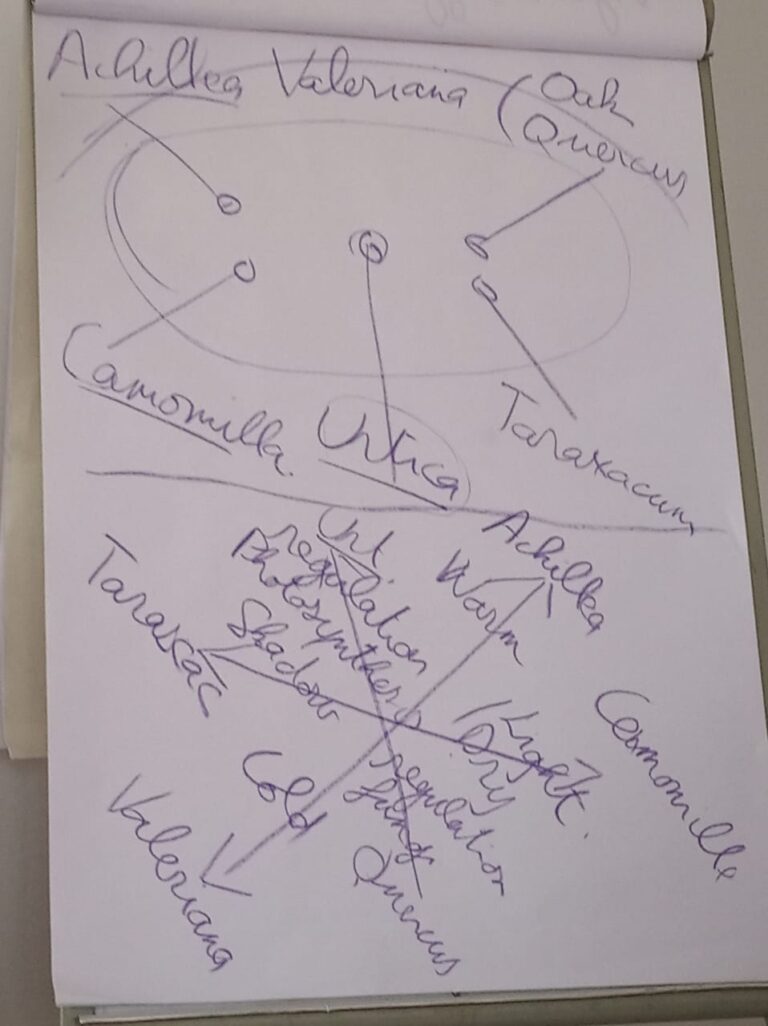 Achillea Valeriana (Oak
Quercus
Camomilla.
Urtica
Taraxacum
Urt.
regulation
Photosynthesis
Shadow
Taraxac
Warm
Achillea
Light
Dry
Camomille
Cold
Valeriana
regulation
Quercus